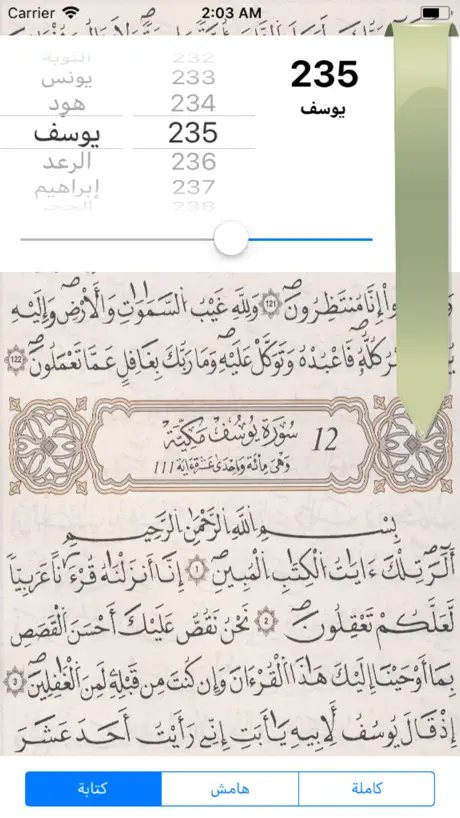 Carrier 2:03 AM
التوبة 232
يونس 233
هود 234
يوسف 235
الرعد 236
إبراهيم 237
الحجر 238
235
يوسف
إِنَّا مُنتَظِرُونَ 121 وَلِلهِ غَيْبُ السَّمَٰوَٰتِ وَالْأَرْضِ وَإِلَيْهِ
كُلُّهُ فَاعْبُدْهُ وَتَوَكَّلْ عَلَيْهِ وَمَا رَبُّكَ بِغَٰفِلٍ عَمَّا تَعْمَلُونَ 122
12 سُورَةُ يُوسُفَ مَكِّيَّة
وَهْيَ مِائَة وَإِحْدَىٰ عَشْرَةَ ءَايَة 111
بِسْمِ اللَّهِ الرَّحْمَٰنِ الرَّحِيمِ
أَلَٓر تِلْكَ ءَايَٰتُ الْكِتَٰبِ الْمُبِينِ 1 إِنَّا أَنزَلْنَٰهُ قُرْءَٰناً عَرَبِيّاً
لَّعَلَّكُمْ تَعْقِلُونَ 2 نَحْنُ نَقُصُّ عَلَيْكَ أَحْسَنَ الْقَصَصِ
بِمَا أَوْحَيْنَا إِلَيْكَ هَٰذَا الْقُرْءَانَ وَإِن كُنتَ مِن قَبْلِهِ لَمِنَ الْغَٰفِلِينَ 3
إِذْ قَالَ يُوسُفُ لِأَبِيهِ يَٰأَبَتِ إِنِّي رَأَيْتُ أَحَدَ عَشَرَ
كاملة هامش كتابة